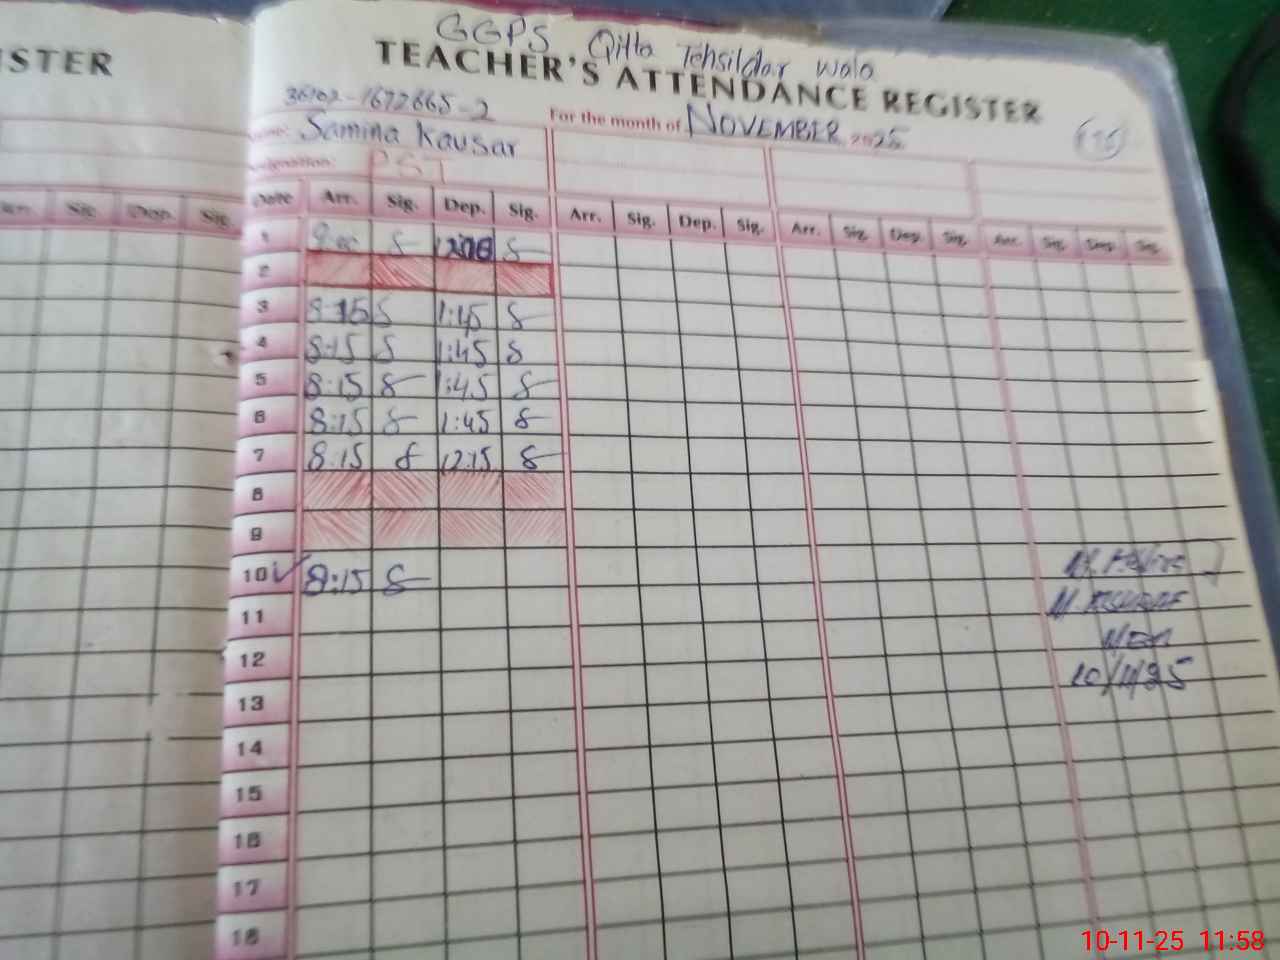 ISTER
GGPS Qilla Tehsildar Wala
TEACHER'S ATTENDANCE REGISTER
36102-1672665-2
For the month of NOVEMBER 2025
Name: Samina Kausar
Designation PST
Sig. Dep. Sig.
Date Arr. Sig. Dep. Sig. Arr. Sig. Dep. Sig. Arr. Sig. Dep. Sig. Arr. Sig. Dep. Sig.
1 S S
2
3 8:15 S 1:45 S
4 8:15 S 1:45 S
5 8:15 S 1:45 S
6 8:15 S 1:45 S
7 8:15 S 12:15 S
8
9
10 8:15 S
11
12
10/11/25
13
14
15
16
17
18
10-11-25 11:58